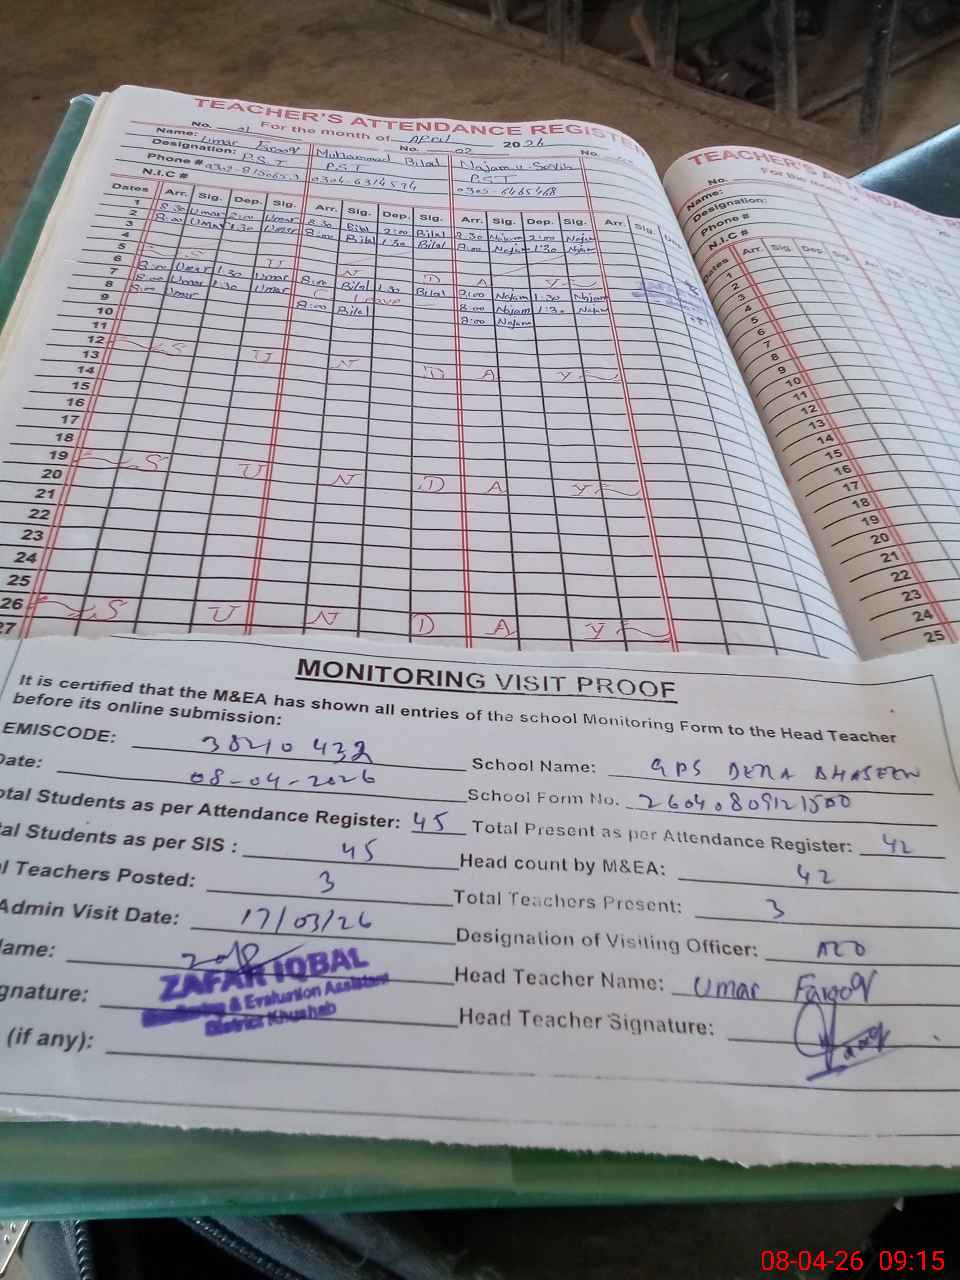 TEACHER'S ATTENDANCE REGISTE
For the month of April 2026
No. 01 No. 02 No.
Name: Umar Farooq Muhammad Bilal
Designation: P.S.T P.S.T P.S.T
Phone # 0304-6314574 0305-6465468
N.I.C #
Dates Arr. Sig. Dep. Sig. Arr. Sig. Dep. Sig. Arr. Sig. Dep. Sig. Arr. Sig. Dep.
1
2 8:30 Umar 2:00 Umar 8:30 Bilal 2:00 Bilal 8:30 Najam 2:00 Najam
3 8:00 Umar 1:30 Umar 8:00 Bilal 1:30 Bilal 8:00 Najam 1:30 Najam
4
5 S U N D A Y
6 8:00 Umar 1:30 Umar 8:00 Bilal 1:30 Bilal 8:00 Najam 1:30 Najam
7 8:00 Umar 1:30 Umar Leave 8:00 Najam 1:30 Najam
8 8:00 Umar 8:00 Bilal 8:00 Najam
9
10
11
12 S U N D A Y
13
14
15
16
17
18
19 S U N D A Y
20
21
22
23
24
25
26 S U N D A Y
27
TEACHER'S ATTENDANCE
For the
No.
Name:
Designation:
Phone #
N.I.C #
Dates Arr. Sig Dep Sig
1
2
3
4
5
6
7
8
9
10
11
12
13
14
15
16
17
18
19
20
21
22
23
24
25
MONITORING VISIT PROOF
It is certified that the M&EA has shown all entries of the school Monitoring Form to the Head Teacher
before its online submission:
EMISCODE: 38210432 School Name: GPS DERA BHASEEN
Date: 08-04-2026 School Form No. 26040809121500
otal Students as per Attendance Register: 45 Total Present as per Attendance Register: 42
tal Students as per SIS : 45 Head count by M&EA: 42
l Teachers Posted: 3 Total Teachers Present: 3
Admin Visit Date: 17/03/26 Designation of Visiting Officer: AEO
lame: Head Teacher Name: Umar Farooq
gnature: Head Teacher Signature: Farooq
ZAFAR IQBAL
Monitoring & Evaluation Assistant
District Khushab
(if any):
08-04-26 09:15